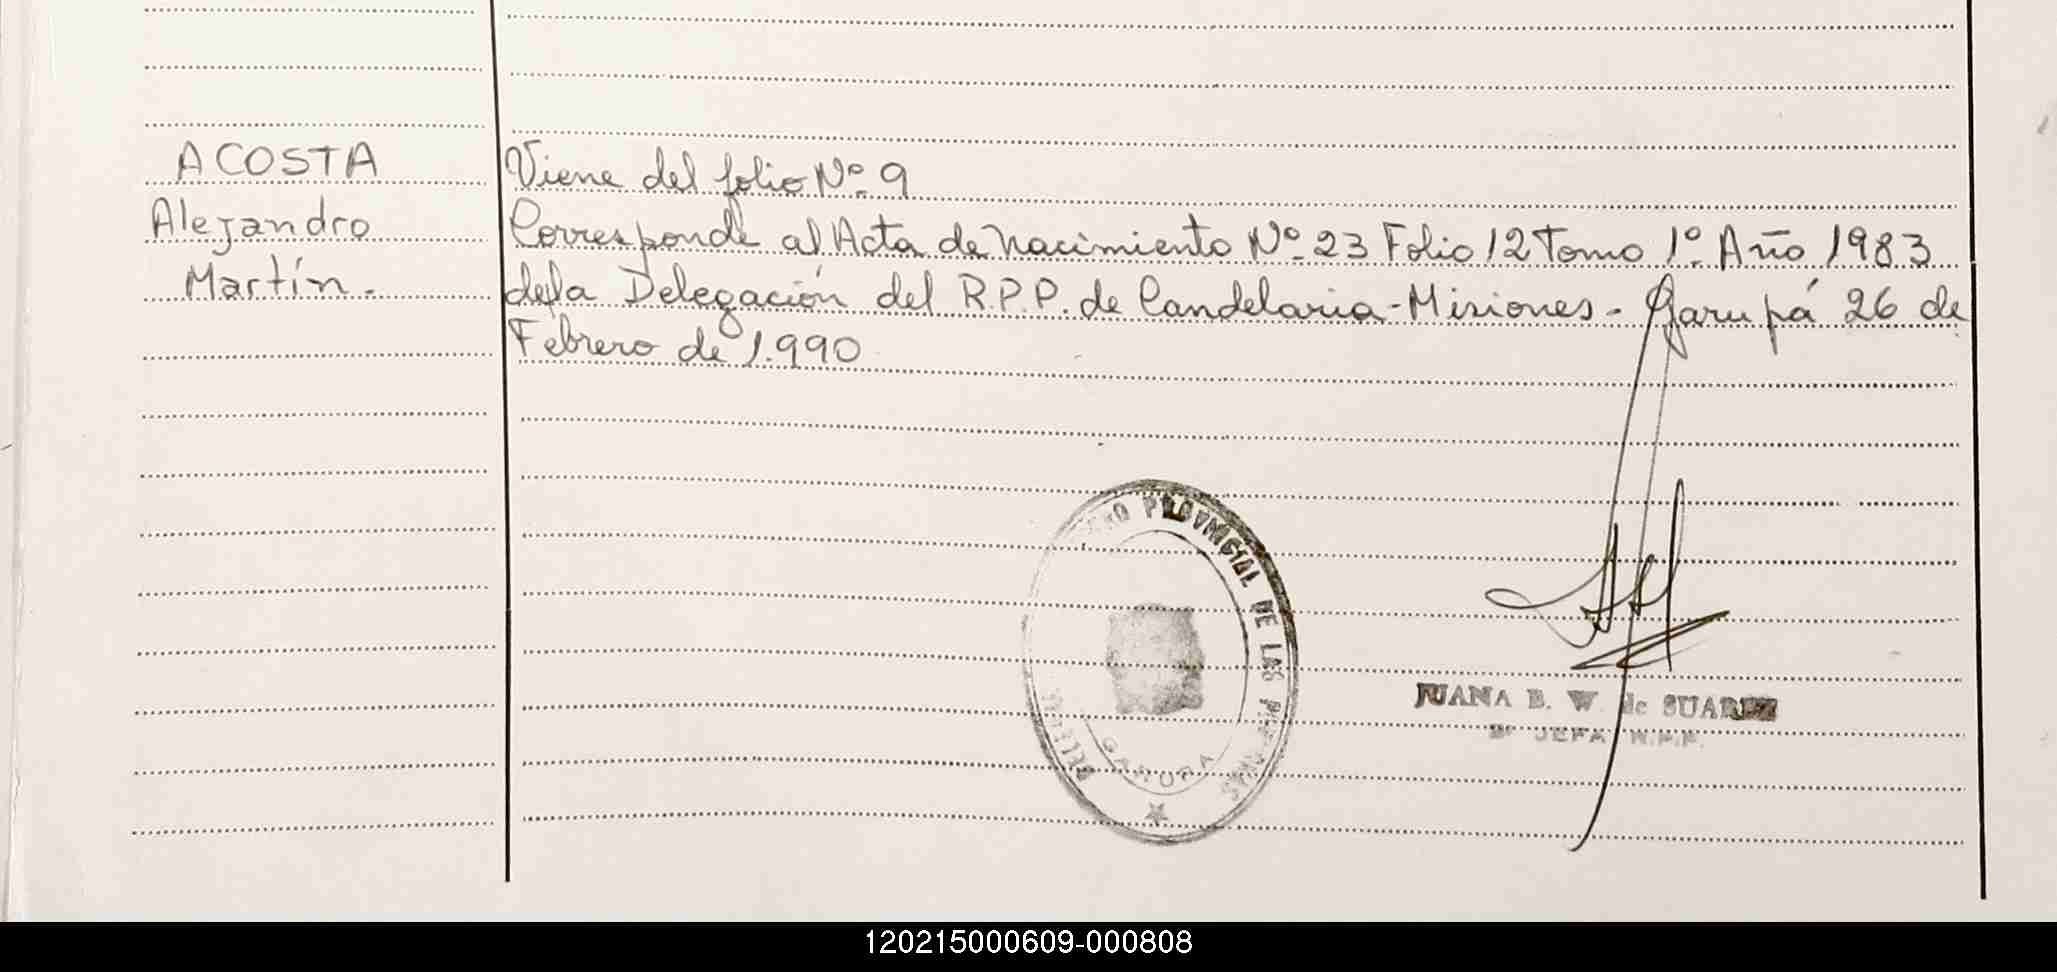 ACOSTA
Alejandro
Martín.-
Viene del folio Nº 9
Corresponde al Acta de Nacimiento Nº 23 Folio 12 Tomo 1º Año 1983
de la Delegación del R.P.P. de Candelaria - Misiones - Garupá 26 de
Febrero de 1.990
PROVINCIAL DE LAS PERSONAS
GARUPA
JUANA B. W. de SUAREZ
JEFA
120215000609-000808